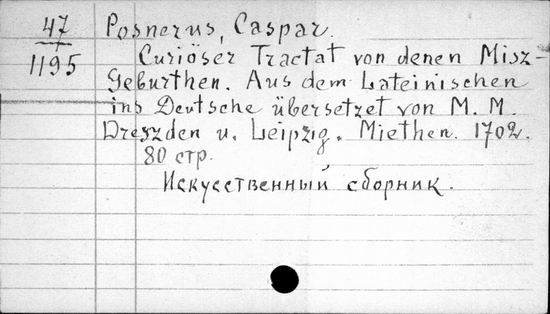 47 Posnerus, Caspar.
1195 Curiöser Tractat von denen Misz-
Geburthen. Aus dem Lateinischen
ins Deutsche übersetzet von M. M.
Dreszden u. Leipzig. Miethen. 1702.
80 стр.
Искусственный сборник.